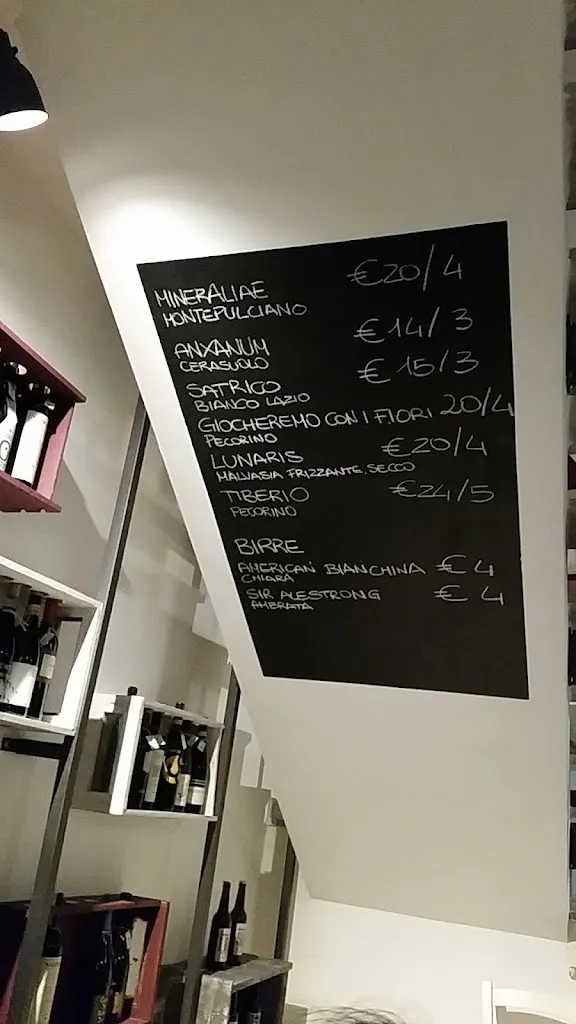 MINERALIAE €20/4
MONTEPULCIANO
ANXANUM €14/3
CERASUOLO
SATRICO €15/3
BIANCO LAZIO
GIOCHEREMO CON I FIORI 20/4
PECORINO
LUNARIS €20/4
MALVASIA FRIZZANTE, SECCO
TIBERIO €24/5
PECORINO
BIRRE
AMERICAN BIANCHINA €4
CHIARA
SIR ALESTRONG €4
AMBRATA